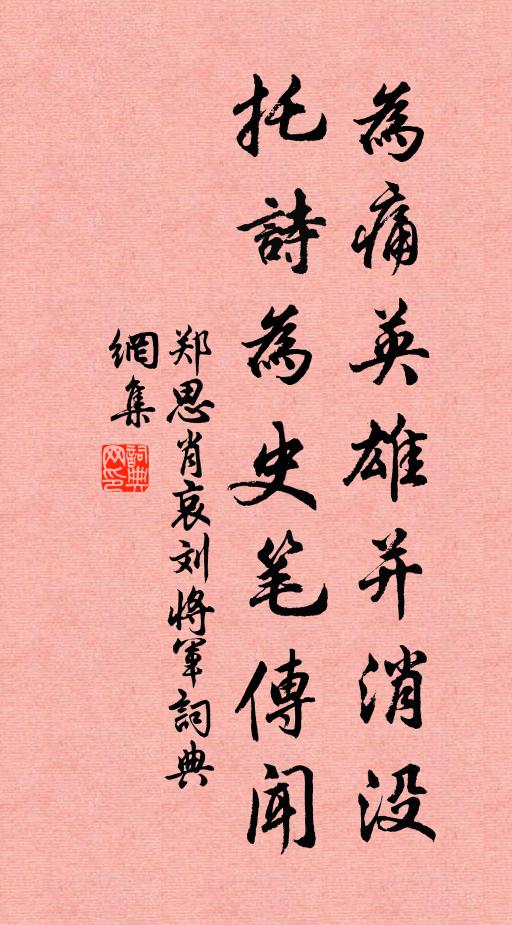 為痛英雄并消没
托詩為史笔傳聞
郑思肖哀刘将軍詞典
網集
詞典
网印